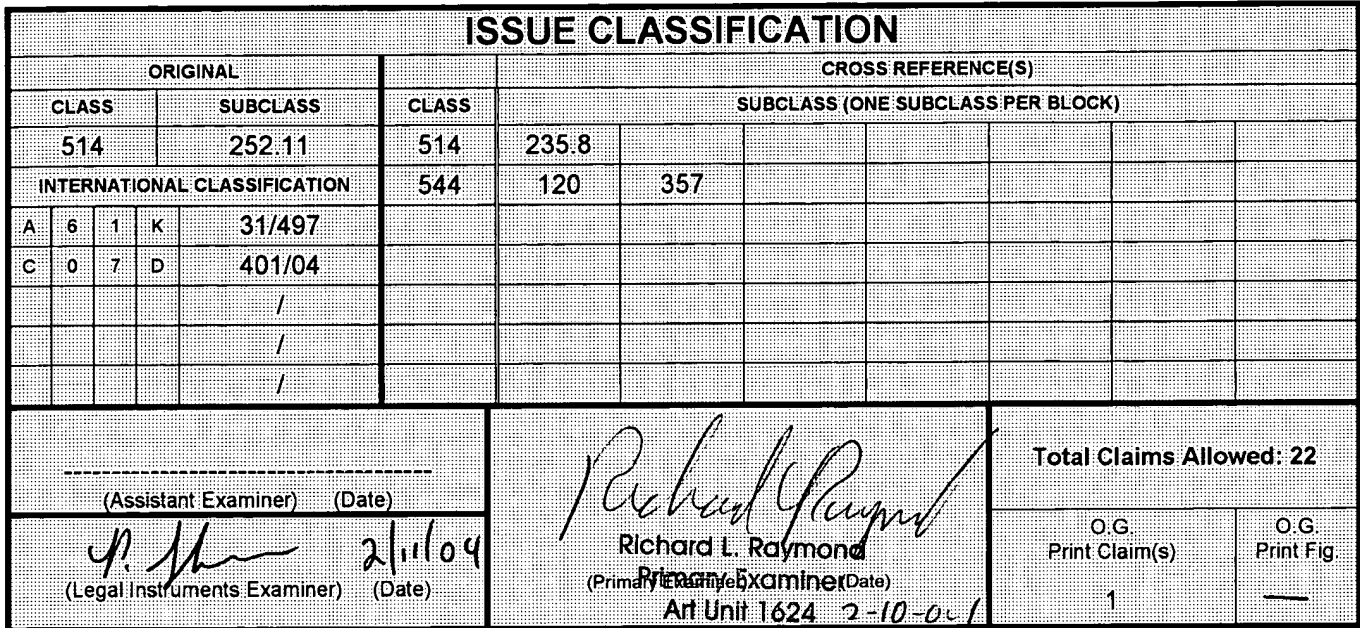 ISSUE CLASSIFICATION
ORIGINAL CROSS REFERENCE(S)
CLASS SUBCLASS CLASS SUBCLASS (ONE SUBCLASS PER BLOCK)
514 252.11 514 235.8
INTERNATIONAL CLASSIFICATION 544 120 357
A 6 1 K 31/497
C 0 7 D 401/04
/
/
/
(Assistant Examiner) (Date)
2/11/04
(Legal Instruments Examiner) (Date)
Richard L. Raymond
Richard L. Raymond
Primary Examiner
(Primary Examiner) (Date)
Art Unit 1624 2-10-04
Total Claims Allowed: 22
O.G. Print Claim(s)
1
O.G. Print Fig.
—